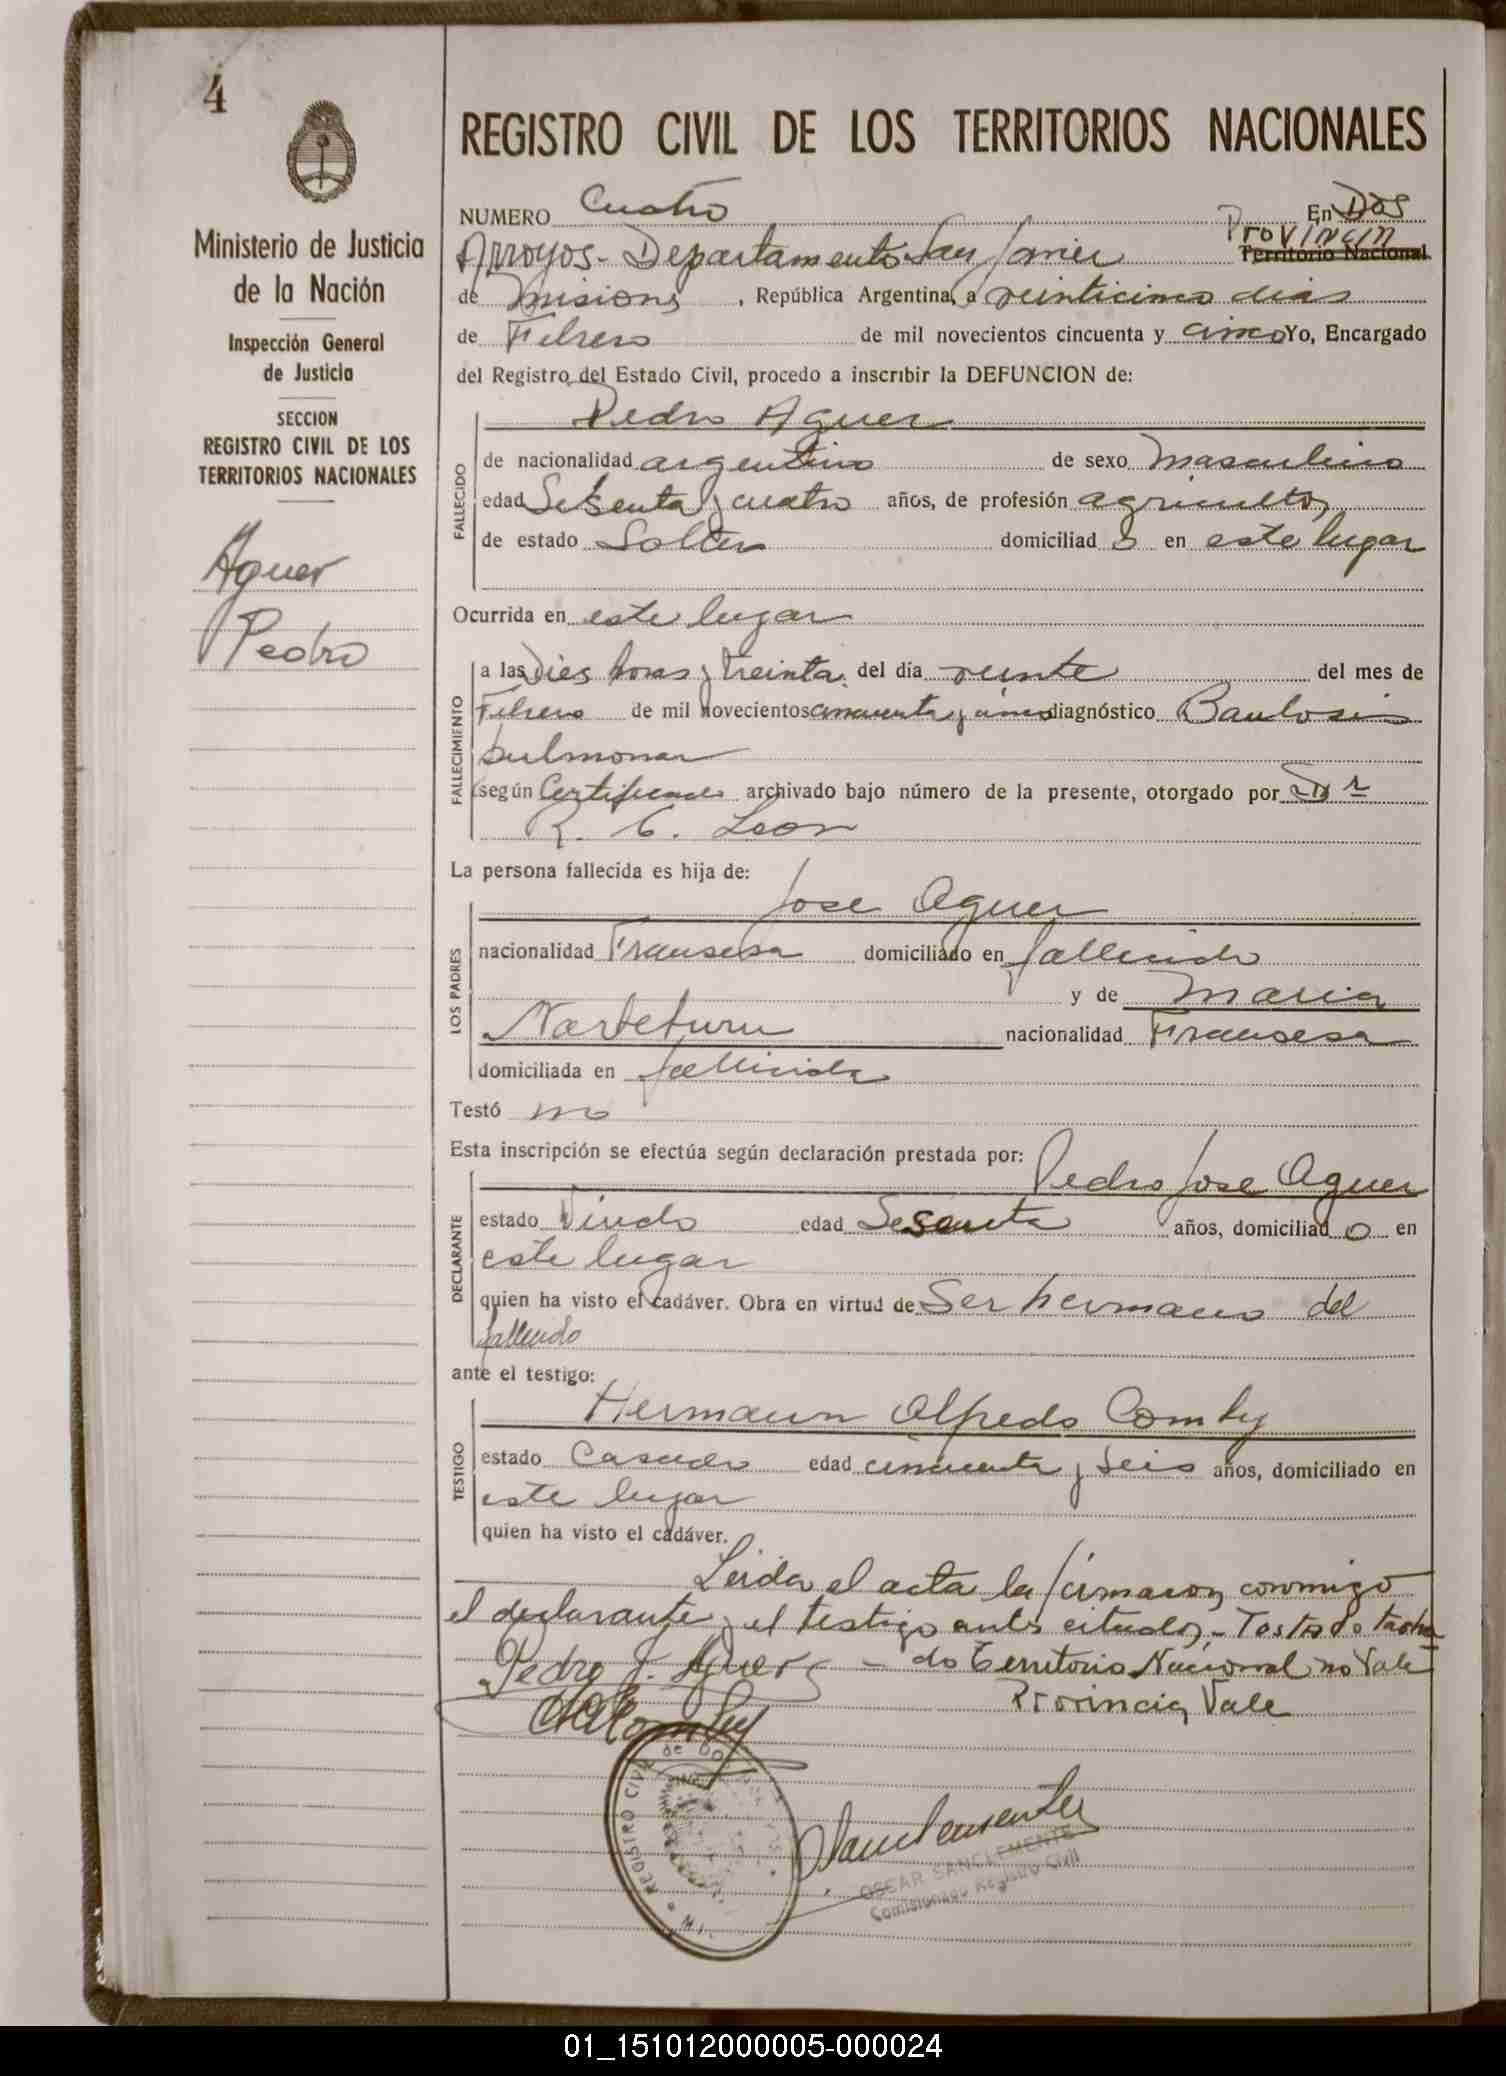 4
Ministerio de Justicia
de la Nación
Inspección General
de Justicia
SECCION
REGISTRO CIVIL DE LOS
TERRITORIOS NACIONALES
Aguer
Pedro
REGISTRO CIVIL DE LOS TERRITORIOS NACIONALES
NUMERO Cuatro En Dos
Provincia
Arroyos - Departamento San Javier Territorio Nacional
de Misiones, República Argentina, a veinticinco dias
de Febrero de mil novecientos cincuenta y cinco Yo, Encargado
del Registro del Estado Civil, procedo a inscribir la DEFUNCION de:
Pedro Aguer
FALLECIDO
de nacionalidad argentino de sexo Masculino
edad Sesenta y cuatro años, de profesión agricultor
de estado Soltero domiciliad o en este lugar
Ocurrida en este lugar
FALLECIMIENTO
a las Dies horas y treinta del día veinte del mes de
Febrero de mil novecientos cincuenta y cinco diagnóstico
pulmonar
según Certificado archivado bajo número de la presente, otorgado por Dr
R. C. Leon
La persona fallecida es hija de:
Jose Aguer
LOS PADRES
nacionalidad Fransesa domiciliado en fallecido
y de Maria
nacionalidad Fransesa
domiciliada en fallecida
Testó no
Esta inscripción se efectúa según declaración prestada por:
Pedro Jose Aguer
DECLARANTE
estado Viudo edad Sesenta años, domiciliad o en
este lugar
quien ha visto el cadáver. Obra en virtud de Ser hermano del
fallecido
ante el testigo:
Hermann Alfredo Comby
TESTIGO
estado Casado edad cincuenta y seis años, domiciliado en
este lugar
quien ha visto el cadáver.
Leida el acta la firmaron conmigo
el declarante y el testigo antes citados, - Testado tacha
Pedro J. Aguer - do Territorio Nacional no Vale
Provincia, Vale
REGISTRO CIVIL de
OSCAR SANCLEMENTE
Comisionado Registro Civil
01_151012000005-000024